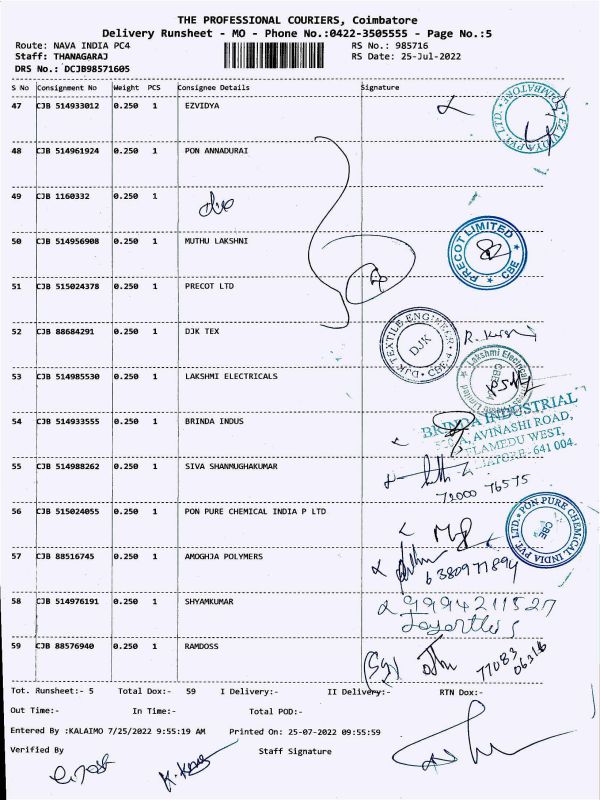 THE PROFESSIONAL COURIERS, Coimbatore
Delivery Runsheet - MO - Phone No.:0422-3505555 - Page No.:5
Route: NAVA INDIA PC4 RS No.: 985716
Staff: THANAGARAJ RS Date: 25-Jul-2022
DRS No.: DCJB98571605
S No Consignment No Weight PCS Consignee Details Signature
47 CJB 514933012 0.250 1 EZVIDYA
EZ VIDYA PVT. LTD. COIMBATORE
48 CJB 514961924 0.250 1 PON ANNADURAI
49 CJB 1160332 0.250 1
50 CJB 514956908 0.250 1 MUTHU LAKSHNI
PRECOT LIMITED CBE
51 CJB 515024378 0.250 1 PRECOT LTD
52 CJB 88684291 0.250 1 DJK TEX
DJK TEXTILE ENGINEER CBE-4 DJK
53 CJB 514985530 0.250 1 LAKSHMI ELECTRICALS
Lakshmi Electrical Limited
54 CJB 514933555 0.250 1 BRINDA INDUS
BRINDA INDUSTRIAL
AVINASHI ROAD,
WEST,
641 004.
55 CJB 514988262 0.250 1 SIVA SHANMUGHAKUMAR
72000 76575
56 CJB 515024055 0.250 1 PON PURE CHEMICAL INDIA P LTD
PON PURE CHEMICAL INDIA PVT. LTD. CBE
57 CJB 88516745 0.250 1 AMOGHJA POLYMERS
6380971894
58 CJB 514976191 0.250 1 SHYAMKUMAR
9994211527
59 CJB 88576940 0.250 1 RAMDOSS
77083
06316
Tot. Runsheet:- 5 Total Dox:- 59 I Delivery:- II Delivery:- RTN Dox:-
Out Time:- In Time:- Total POD:-
Entered By :KALAIMO 7/25/2022 9:55:19 AM Printed On: 25-07-2022 09:55:59
Verified By Staff Signature